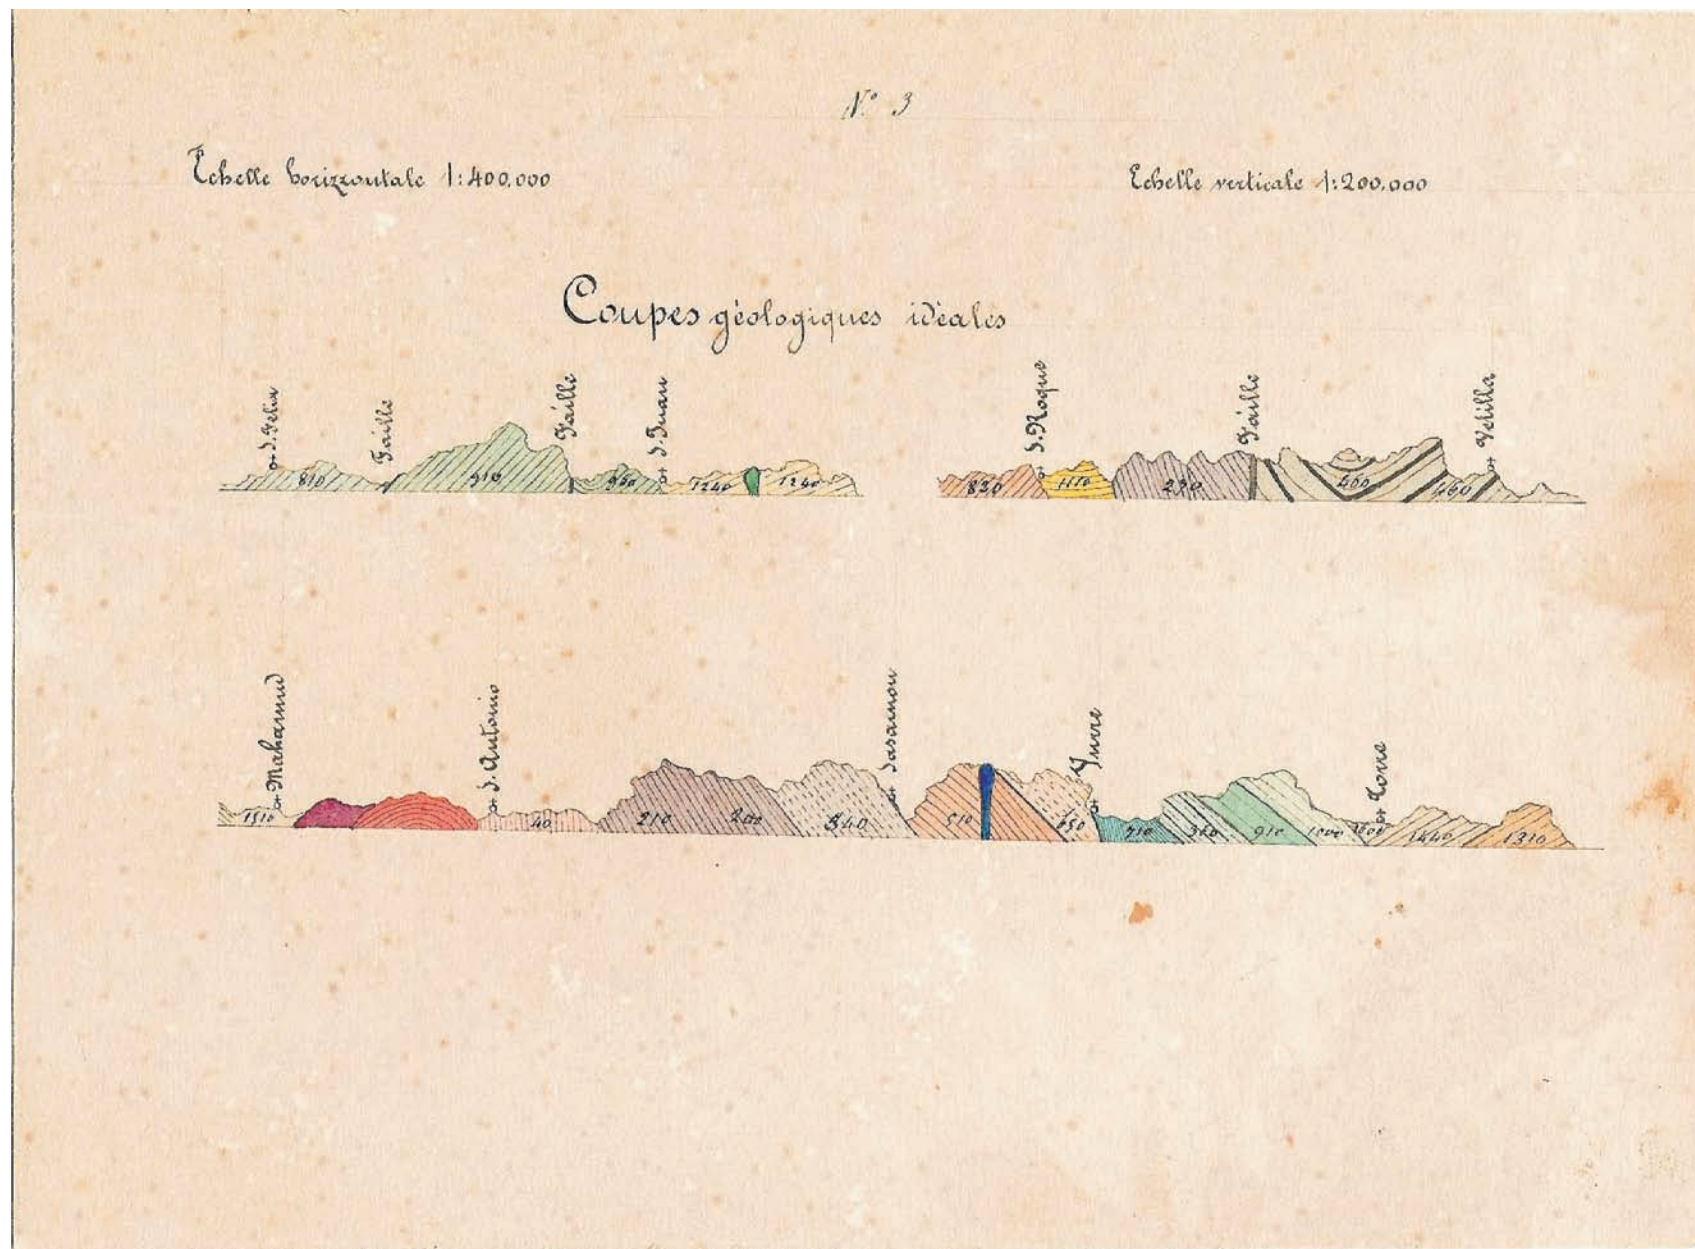 N.° 3
Echelle horizzontale 1:400.000
Echelle verticale 1:200.000
Coupes géologiques idéales
S. Felix
Faille
Faille
S. Juan
810
910
960
1240
1240
S. Roque
Faille
Velilla
820
1110
230
460
460
Mahamud
S. Antonio
Sasamon
Yuvre
Torre
1510
40
210
200
340
510
650
710
360
910
1000
1600
1440
1310